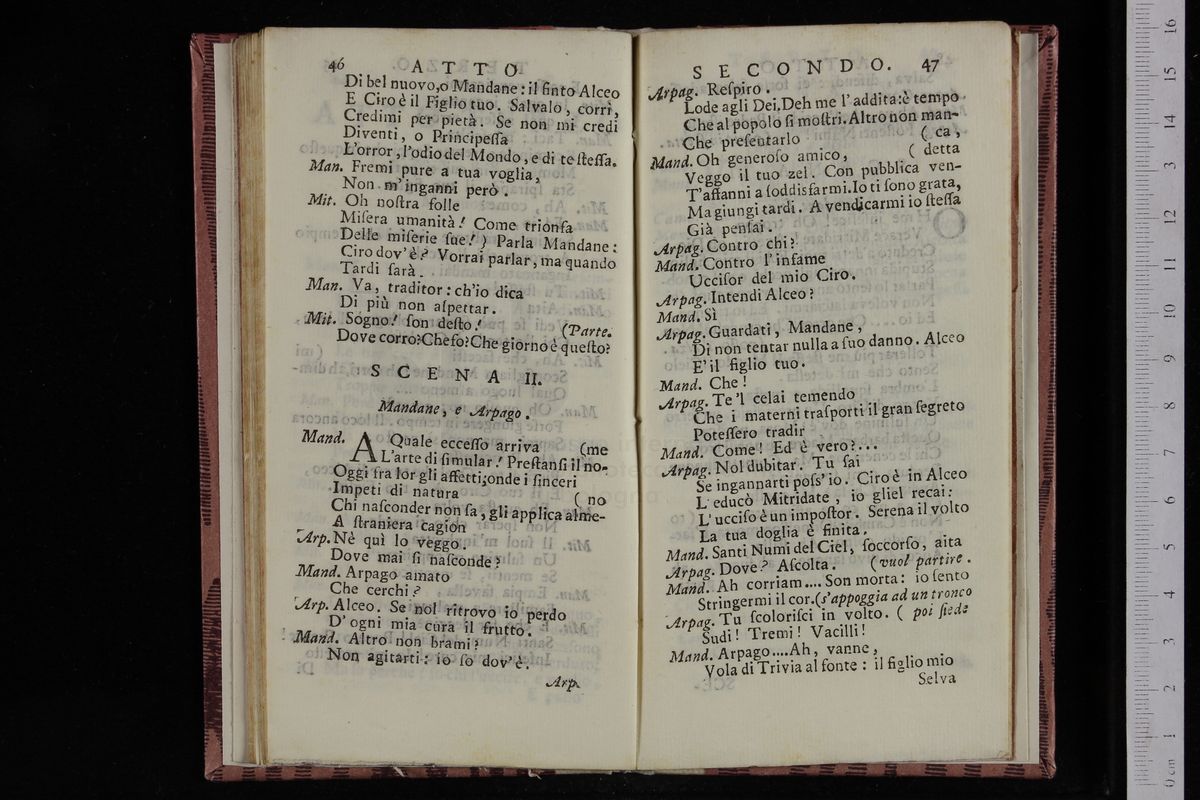 46 ATTO
Di bel nuovo,o Mandane: il finto Alceo
E Ciro è il Figlio tuo. Salvalo, corri,
Credimi per pietà. Se non mi credi
Diventi, o Principeſſa
L'orror, l'odio del Mondo, e di te ſteſſa.
Man. Fremi pure a tua voglia,
Non m'inganni però.
Mit. Oh noſtra folle
Miſera umanità! Come trionfa
Delle miſerie ſue! ) Parla Mandane:
Ciro dov' è? Vorrai parlar, ma quando
Tardi ſarà.
Man. Va, traditor: ch'io dica
Di più non aſpettar.
Mit. Sogno! ſon deſto! (Parte.
Dove corro?Cheſo?Che giorno è queſto?
SCENA II.
Mandane, e Arpago.
Mand. A Quale ecceſſo arriva (me
L'arte di ſimular! Preſtanſi il no-
Oggi fra lor gli affetti;onde i ſinceri
Impeti di natura ( no
Chi naſconder non ſa, gli applica alme-
A ſtraniera cagion
Arp. Nè quì lo veggo.
Dove mai ſi naſconde?
Mand. Arpago amato
Che cerchi?
Arp. Alceo. Se nol ritrovo io perdo
D' ogni mia cura il frutto.
Mand. Altro non brami?
Non agitarti: io ſo dov' è.
Arp.
SECONDO. 47
Arpag. Reſpiro.
Lode agli Dei. Deh me l' addita:è tempo
Che al popolo ſi moſtri. Altro non man-
Che preſentarlo ( ca,
Mand. Oh generoſo amico, ( detta
Veggo il tuo zel. Con pubblica ven-
T'affanni a ſoddisfarmi. Io ti ſono grata,
Ma giungi tardi. A vendicarmi io ſteſſa
Già penſai.
Arpag. Contro chi?
Mand. Contro l' infame
Uccifor del mio Ciro.
Arpag. Intendi Alceo?
Mand. Sì
Arpag. Guardati, Mandane,
Di non tentar nulla a ſuo danno. Alceo
E' il figlio tuo.
Mand. Che!
Arpag. Te 'l celai temendo
Che i materni traſporti il gran ſegreto
Poteſſero tradir
Mand. Come! Ed è vero?...
Arpag. Nol dubitar. Tu ſai
Se ingannarti poſs' io. Ciro è in Alceo
L' educò Mitridate, io gliel recai:
L' ucciſo è un impoſtor. Serena il volto
La tua doglia è finita.
Mand. Santi Numi del Ciel, ſoccorſo, aita
Arpag. Dove? Aſcolta. (vuol partire.
Mand. Ah corriam.... Son morta: io ſento
Stringermi il cor.(s'appoggia ad un tronco
Arpag. Tu ſcoloriſci in volto. ( poi ſiede
Sudi! Tremi! Vacilli!
Mand. Arpago....Ah, vanne,
Vola di Trivia al fonte: il figlio mio
Selva